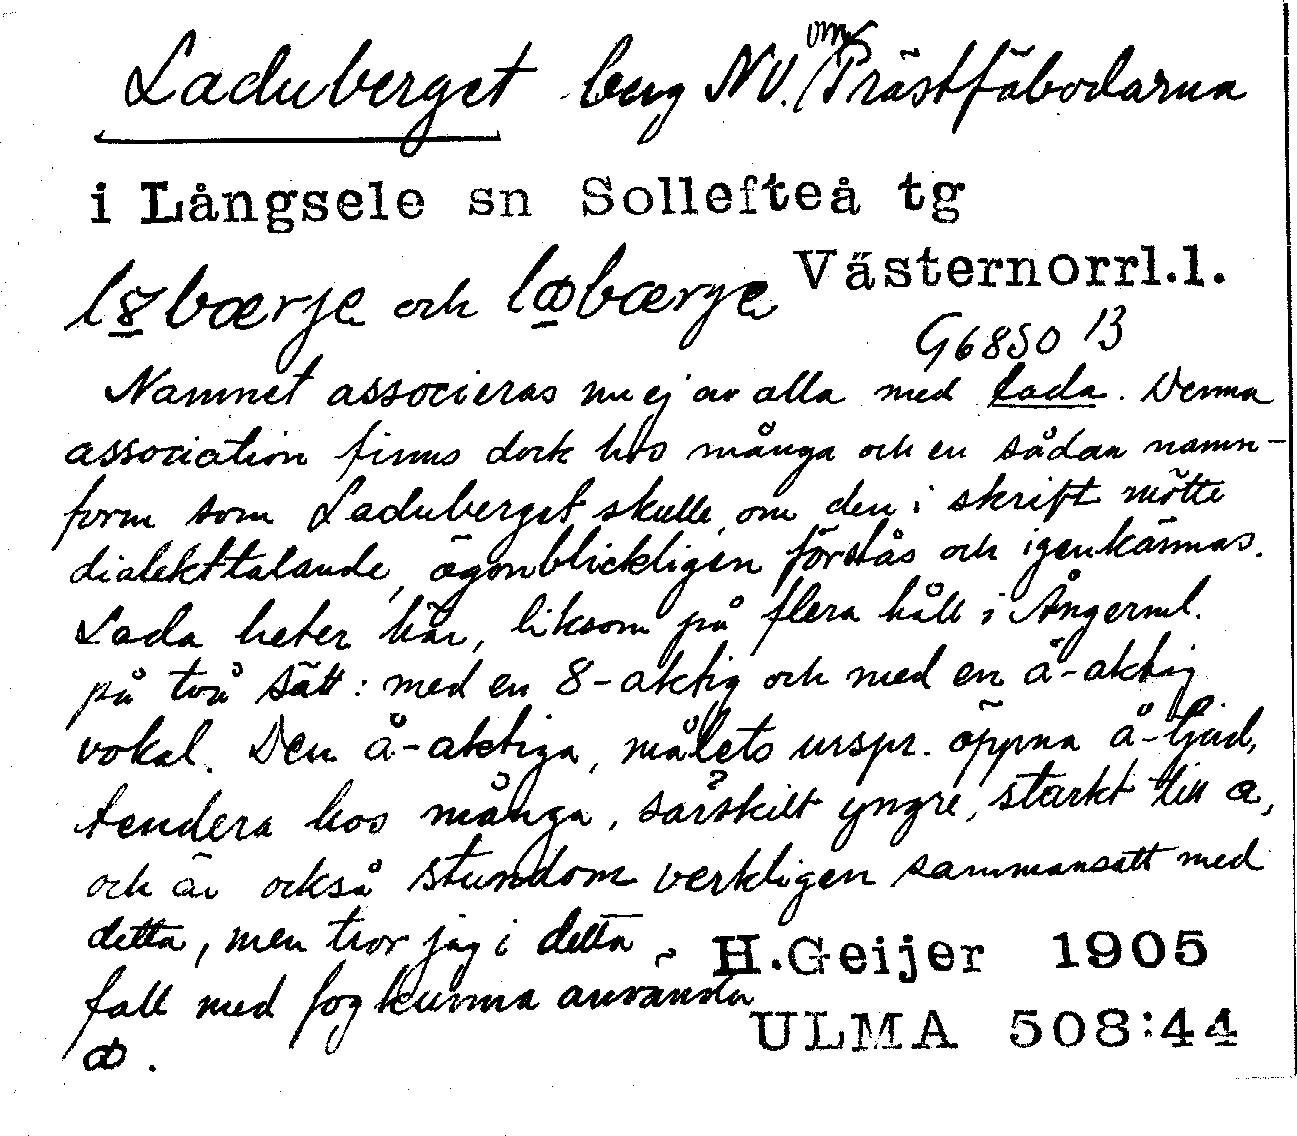 Laduberget berg NV. om Prästfäbodarna
i Långsele sn Sollefteå tg
Västernorrl.l.
l8bærje och lꝏbærje
G6850 13
Namnet associeras nu ej av alla med lada. Denna
association finns dock hos många och en sådan namn-
form som Laduberget skulle, om den i skrift mötte
dialekttalande, ögonblickligen förstås och igenkännas.
Lada heter här, liksom på flera håll i Ångerml.
på två sätt: med en 8-aktig och med en å-aktig
vokal. Den å-aktiga, målets urspr. öppna å-ljud,
tendera hos många, särskilt yngre, starkt till a,
och är också stundom verkligen sammansatt med
detta, men tror jag i detta
fall med fog kunna använda
ꝏ.
H.Geijer 1905
ULMA 508:44